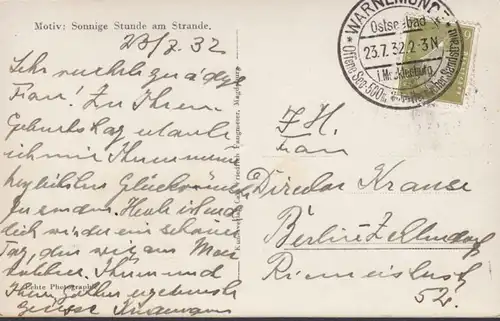 Motiv: Sonnige Stunde am Strande.
23/7. 32
Sehr verehrte gnädige
Frau! Zu Ihrem
Geburtstag erlaube
ich mir Ihnen meine
herzlichsten Glückwünsche
zu senden. Heute ist end
lich wieder ein schöner
Tag, den wir am Meer
Ihnen und
Ihrem Gatten ergebenste
Grüsse
Echte Photographie
Magdeburg
WARNEMÜNDE
Ostseebad
23.7.32.2-3N
i. Mecklenburg
Offene See-500m
F. H.
Frau
Director Krause
Berlin-Zehlendorf
Riemeisterstr.
52.